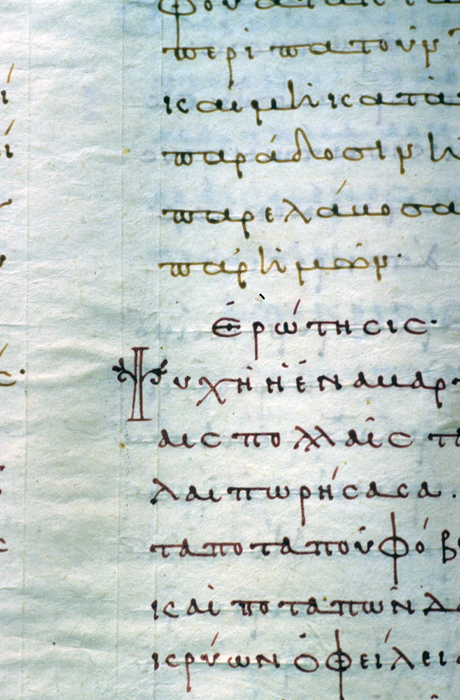 φοῦ ἀτάκτω
περιπατοῦν
καὶ μὴ κατὰ
παράδοσιν ἣ
παρελάβοσα
παρ ἡμῶν·
Ἐρώτησις·
Ψυχὴ ἡ ἐν ἁμαρ
αις πολλαῖς τα
λαιπωρήσασα.
τα ποταποῦ φόβ
καὶ ποταπῶν δ
κρύων ὀφείλει